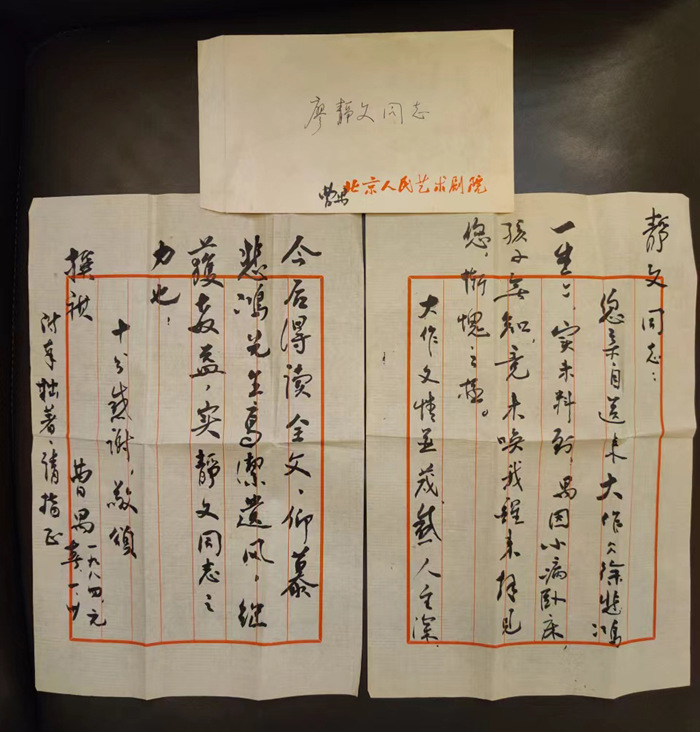 廖靜文同志
曹禺 北京人民艺术剧院
靜文同志：
您亲自送来大作《徐悲鸿
一生》，实未料到，禺因小病卧床，
孩子無知，竟未唤我醒来拜见
您，惭愧之极。
大作文情並茂，感人至深，
今后得读全文，仰慕
悲鸿先生高洁遗风，继
獲教益，实靜文同志之
力也！
十分感谢，敬颂
撰祺
曹禺 一九八四、元
附奉拙著，请指正